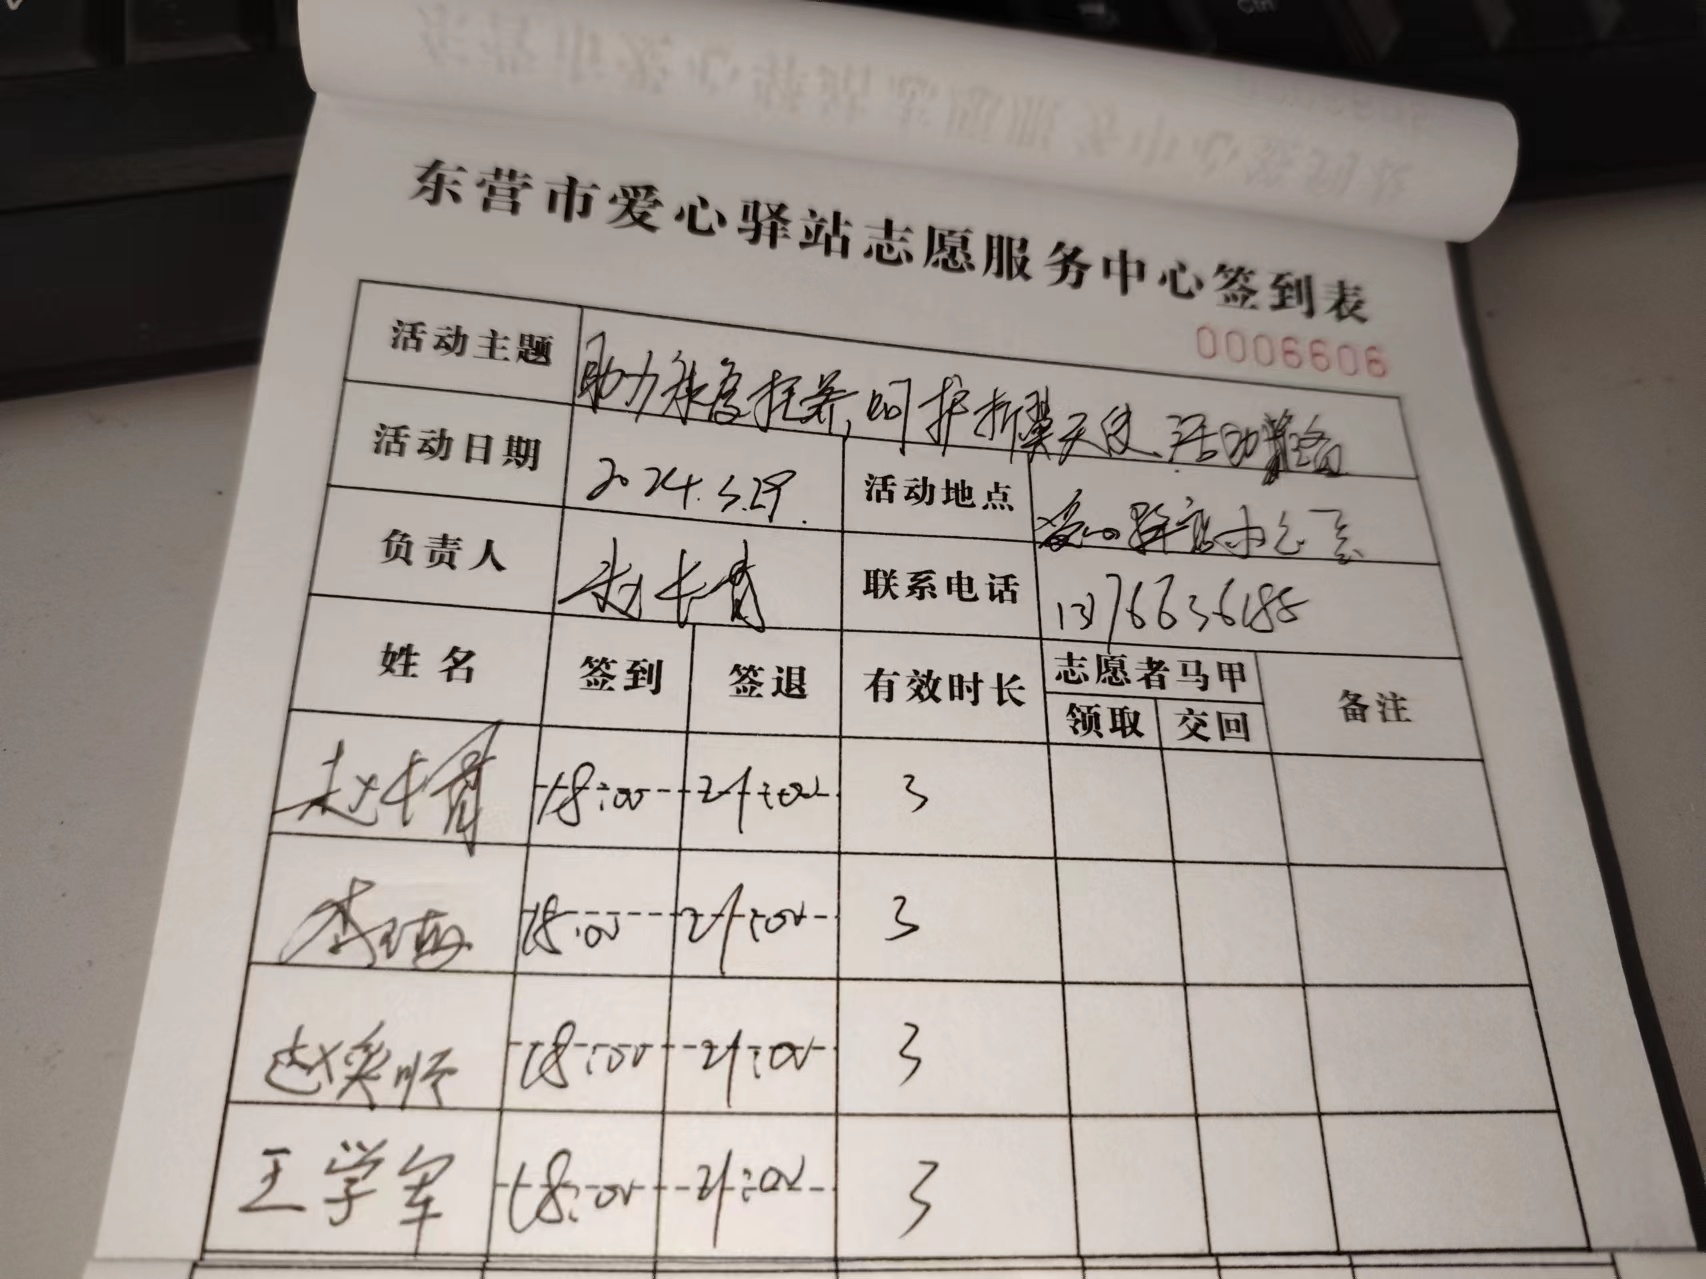 东营市爱心驿站志愿服务中心签到表
0006606
活动主题 助力康复托养,呵护折翼天使 活动
活动日期 2024.3.29. 活动地点 爱心驿站办公室
负责人 赵长青 联系电话
姓名 签到 签退 有效时长 志愿者马甲 备注
领取 交回
赵长青 18:00 21:00 3
18:00 21:00 3
18:00 21:00 3
王学军 18:00 21:00 3